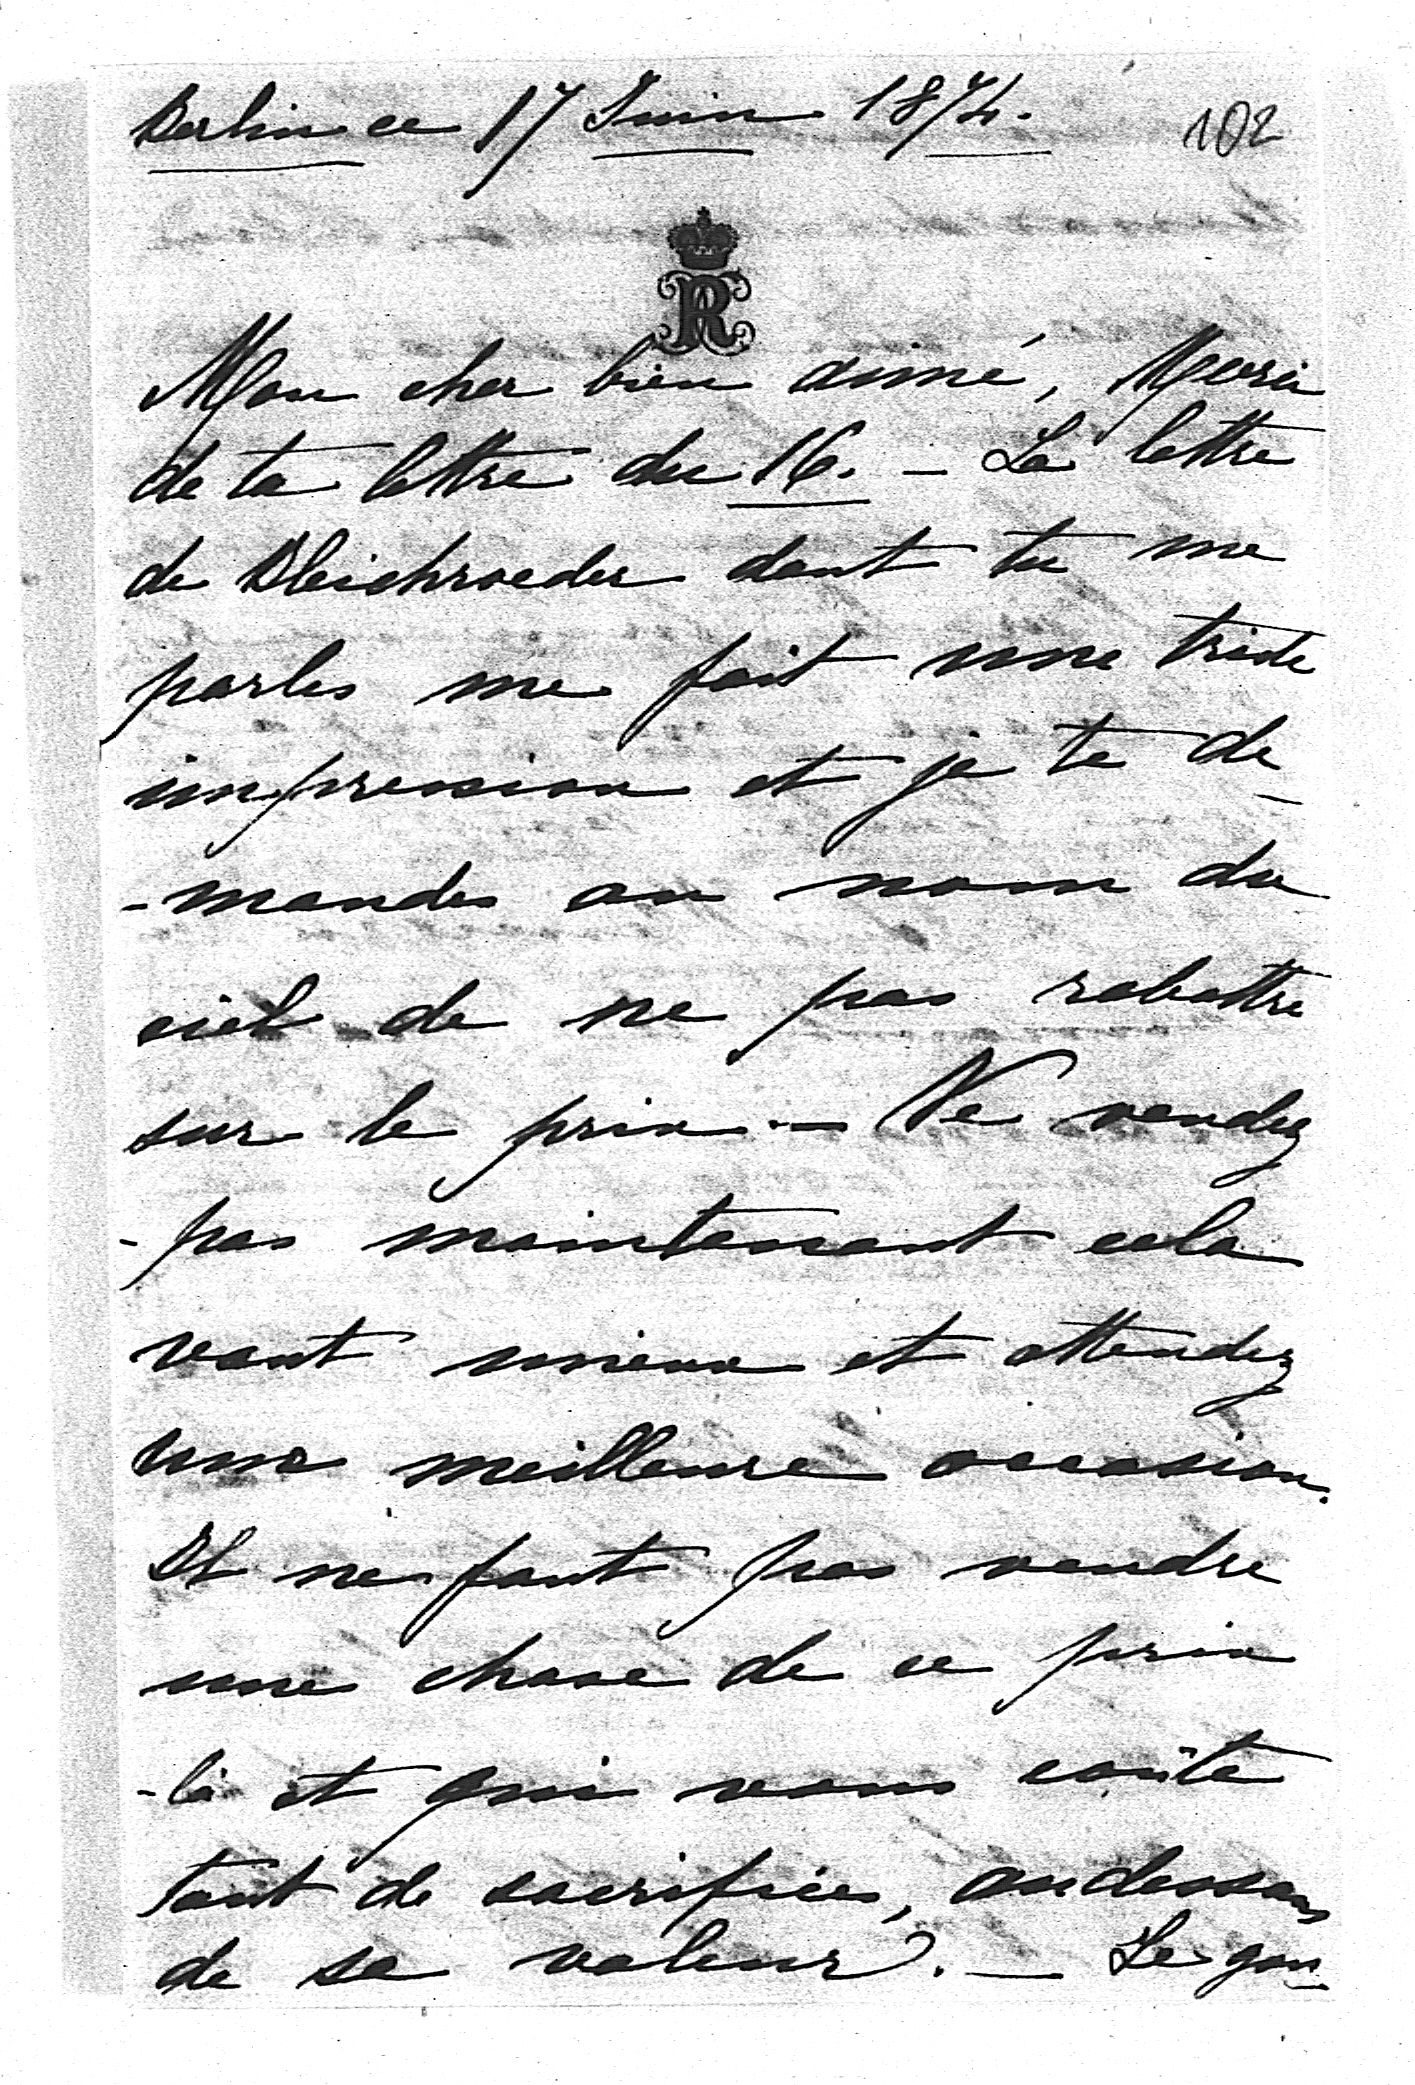 Berlin ce 17 Juin 1874.
102
R
Mon cher bien aimé, Merci
de ta lettre du 16. - La lettre
de Bleichroeder dont tu me
parles me fait une triste
impression et je te de
-mandes au nom du
ciel de ne pas rabattre
sur le prix - Ne vendez
-pas maintenant cela
vaut mieux et attendez
une meilleure occasion.
Il ne faut pas vendre
une chose de ce prix
-là et qui vous coûte
tant de sacrifices, audessous
de sa valeur. - Le gou